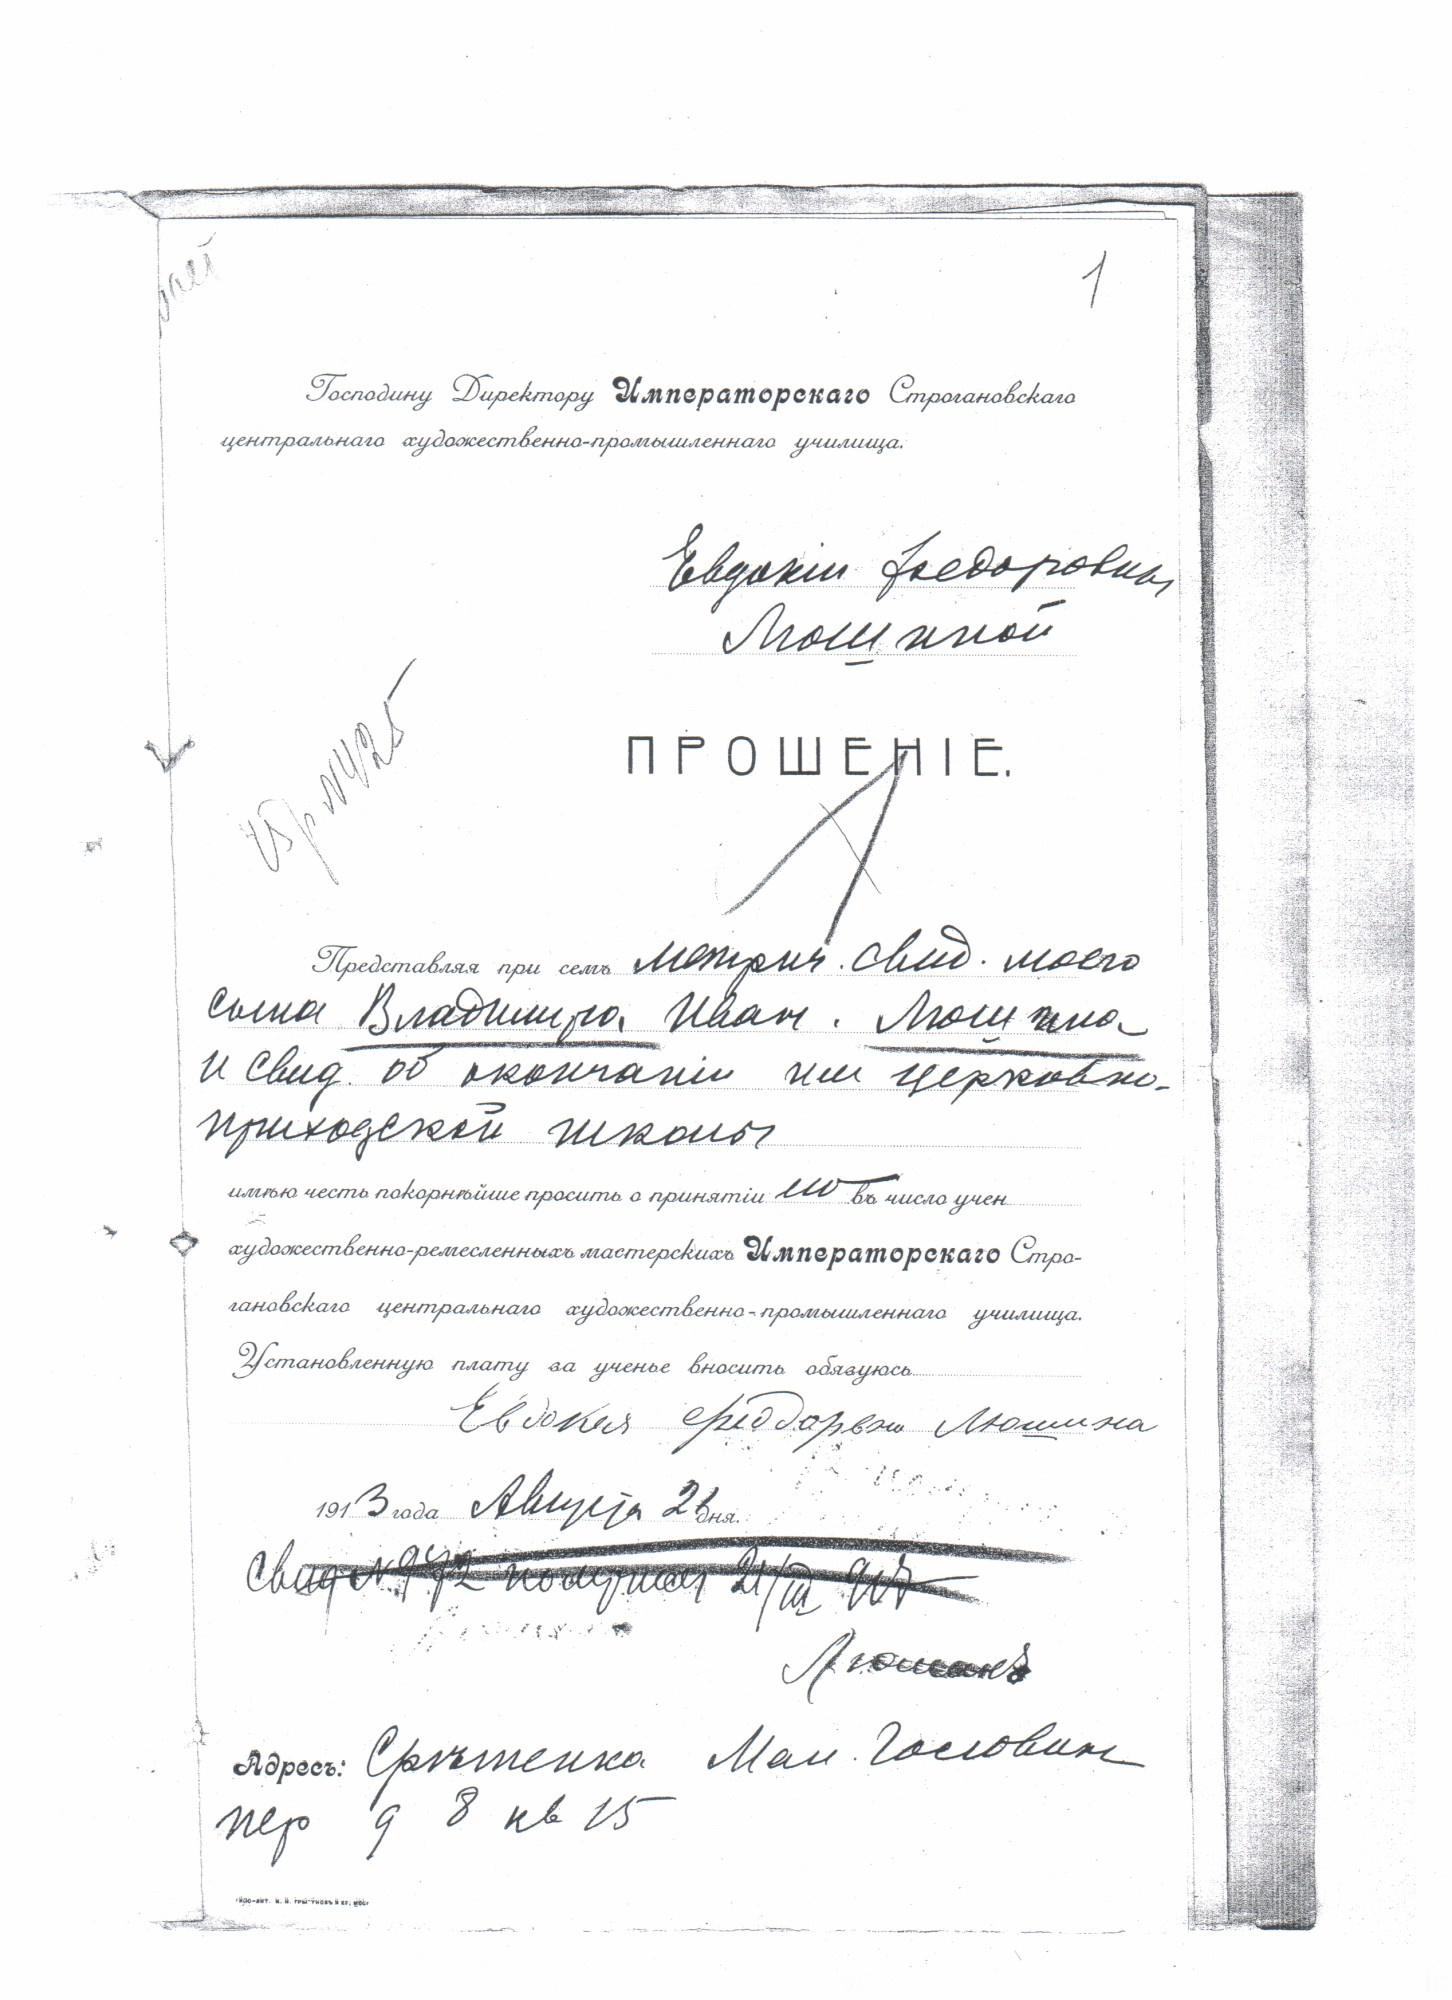 1
Господину Директору Императорскаго Строгановскаго
центральнаго художественно-промышленнаго училища.
Евдокіи Федоровны
Люшиной
ПРОШЕНІЕ.
Представляя при семъ метрич. свид. моего
сына Владимира Иван. Люшина
и свид. об окончаніи им церковно-
приходской школы
имѣю честь покорнѣйше просить о принятіи его въ число учен
художественно-ремесленныхъ мастерскихъ Императорскаго Стро-
гановскаго центральнаго художественно-промышленнаго училища.
Установленную плату за ученье вносить обязуюсь
Евдокея Федорвна Люшина
1913 года Августа 21 дня.
Свид №972 получил 21/III 917
Люшинъ
Адресъ: Срѣтенка Мал. Головин
пер д 8 кв 15